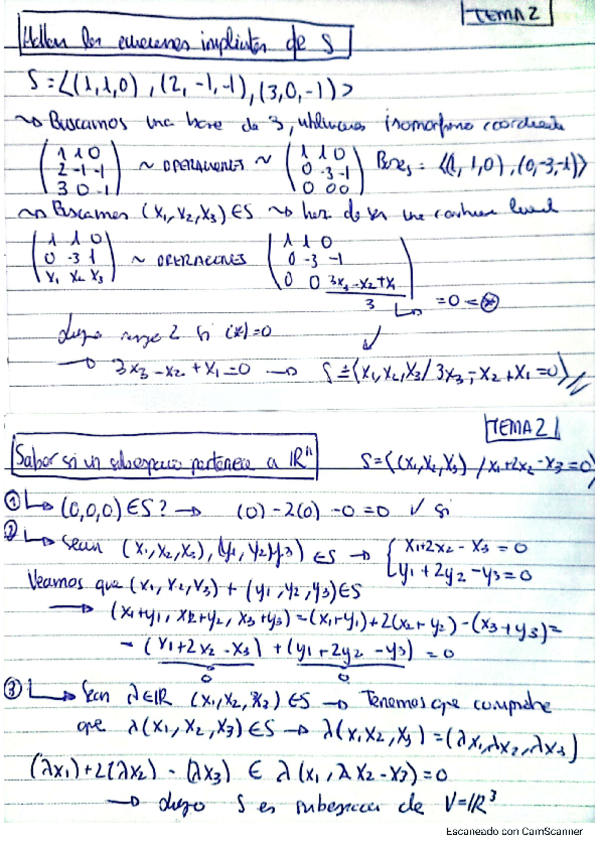 TEMA 2
Hallar las ecuaciones implícitas de S
S = <(1,1,0), (2,-1,-1), (3,0,-1)>
~> Buscamos una base de 3, utilizamos isomorfismo coordenado
( 1 1 0 ) ( 1 1 0 )
( 2 -1 -1 ) ~ OPERACIONES ~ ( 0 -3 -1 ) Base_S = <(1,1,0), (0,-3,-1)>
( 3 0 -1 ) ( 0 0 0 )
~> Buscamos (x₁, x₂, x₃) ∈ S ~> ha de ser una lineal
( 1 1 0 ) ( 1 1 0 )
( 0 -3 1 ) ~ OPERACIONES ( 0 -3 -1 )
( x₁ x₂ x₃ ) ( 0 0 3x₃-x₂+x₁ / 3 ) → =0 = (*)
luego rango 2 si (*)=0
→ 3x₃ - x₂ + x₁ = 0 → S = (x₁, x₂, x₃ / 3x₃ - x₂ + x₁ = 0)
TEMA 2
Saber si un subespacio pertenece a ℝⁿ S = {(x₁, x₂, x₃) / x₁+2x₂-x₃=0}
① → (0,0,0) ∈ S? → (0) - 2(0) - 0 = 0 ✓ si
② → Sean (x₁, x₂, x₃), (y₁, y₂, y₃) ∈ S → { x₁+2x₂ - x₃ = 0
y₁ + 2y₂ - y₃ = 0
Veamos que (x₁, x₂, x₃) + (y₁, y₂, y₃) ∈ S
→ (x₁+y₁, x₂+y₂, x₃+y₃) = (x₁+y₁) + 2(x₂+y₂) - (x₃+y₃) =
= (x₁+2x₂-x₃) + (y₁+2y₂-y₃) = 0
0 0
③ → Sean λ∈ℝ (x₁, x₂, x₃) ∈ S → Tenemos que comprobar
que λ(x₁, x₂, x₃) ∈ S → λ(x₁ x₂, x₃) = (λx₁, λx₂, λx₃)
(λx₁) + 2(λx₂) - (λx₃) ∈ λ(x₁, λx₂-x₃) = 0
→ luego S es subespacio de V=ℝ³
Escaneado con CamScanner